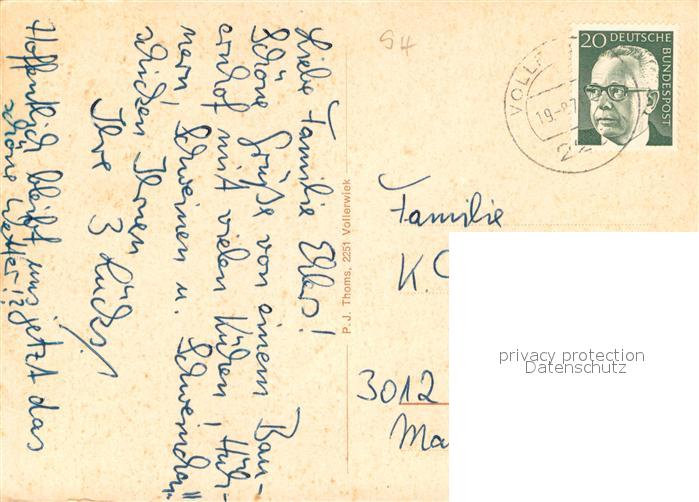 Liebe Familie Ehlers!
Schöne Grüße von einem Bau-
ernhof mit vielen Kühen, Hüh-
nern, Schweinen u. Schweinchen
schicken Ihnen
Ihre 3 Lücks!
Hoffentlich bleibt uns jetzt das
schöne Wetter!?
P. J. Thoms, 2251 Vollerwiek
54
20 DEUTSCHE
BUNDESPOST
VOLLE
19.-8.7
Familie
K.
3012
Ma
privacy protection
Datenschutz